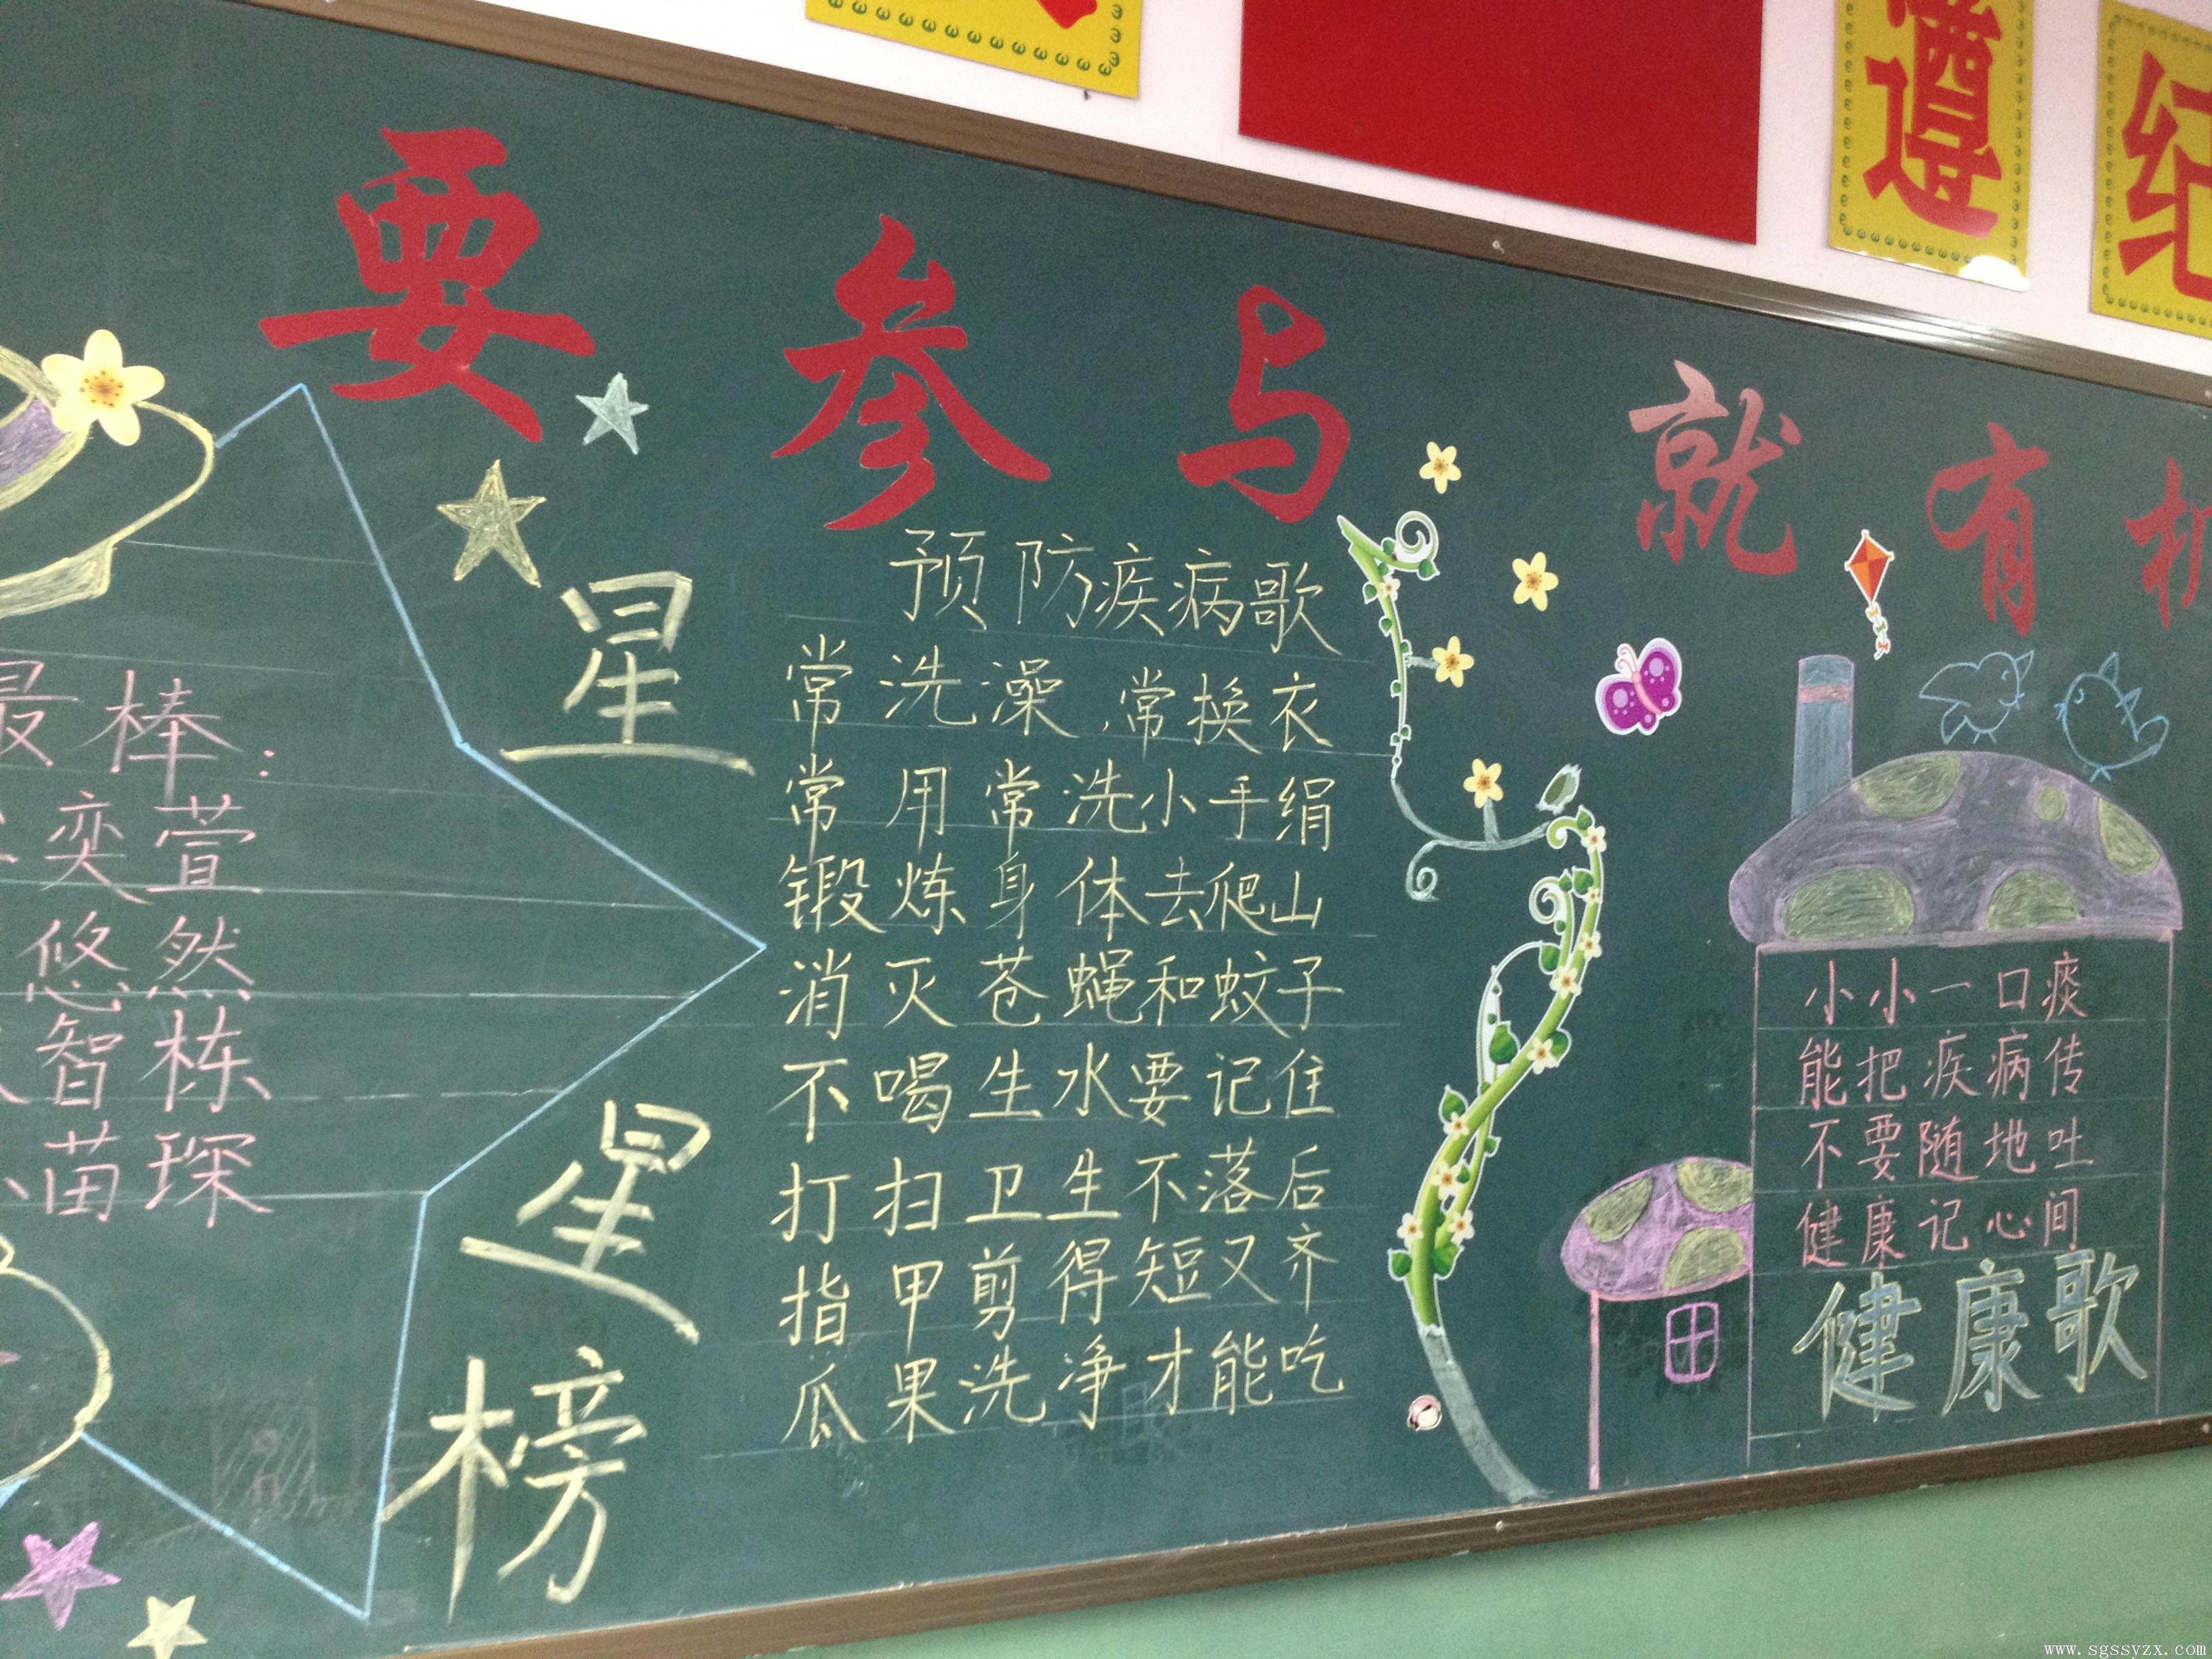 遵
要参与就有机
最棒：
奕萱
悠然
智栋
苗琛
星星榜
预防疾病歌
常洗澡,常换衣
常用常洗小手绢
锻炼身体去爬山
消灭苍蝇和蚊子
不喝生水要记住
打扫卫生不落后
指甲剪得短又齐
瓜果洗净才能吃
小小一口痰
能把疾病传
不要随地吐
健康记心间
健康歌
www.sgssyzx.com